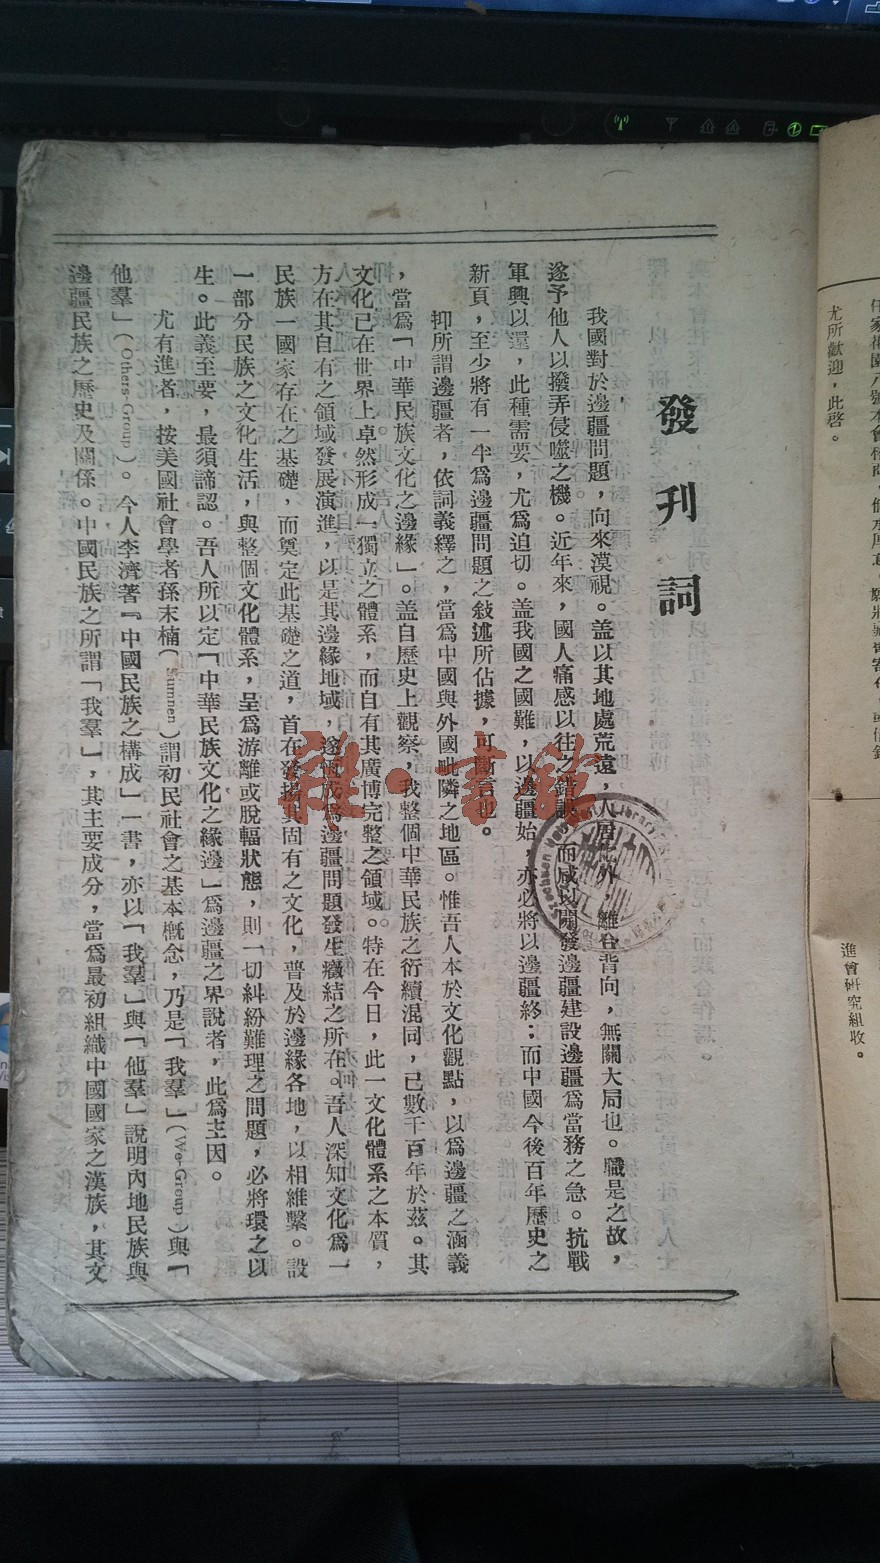 發刊詞
我國對於邊疆問題，向來漠視。蓋以其地處荒遠，人居化外，離合背向，無關大局也。職是之故，
遂予他人以撥弄侵噬之機。近年來，國人痛感以往之錯誤，而咸以開發邊疆建設邊疆爲當務之急。抗戰
軍興以還，此種需要，尤爲迫切。蓋我國之國難，以邊疆始，亦必將以邊疆終；而中國今後百年歷史之
新頁，至少將有一半爲邊疆問題之敘述所佔據，可斷言也。
抑所謂邊疆者，依詞義繹之，當爲中國與外國毗隣之地區。惟吾人本於文化觀點，以爲邊疆之涵義
，當爲「中華民族文化之邊緣」。蓋自歷史上觀察，我整個中華民族之衍續混同，已數千百年於茲。其
文化已在世界上卓然形成一獨立之體系，而自有其廣博完整之領域。特在今日，此一文化體系之本質，
方在其自有之領域發展演進，以是其邊緣地域，遂恆成爲邊疆問題發生癥結之所在。吾人深知文化爲一
民族一國家存在之基礎，而奠定此基礎之道，首在發揚其固有之文化，普及於邊緣各地，以相維繫。設
一部分民族之文化生活，與整個文化體系，呈爲游離或脫輻狀態，則一切糾紛難理之問題，必將環之以
生。此義至要，最須諦認。吾人所以定「中華民族文化之緣邊」爲邊疆之界說者，此爲主因。
尤有進者，按美國社會學者孫末楠（Sumnen）謂初民社會之基本概念，乃是「我羣」（We-Group）與「
他羣」（Others-Group）。今人李濟著『中國民族之構成」一書，亦以「我羣」與「他羣」說明內地民族與
邊疆民族之歷史及關係。中國民族之所謂「我羣」，其主要成分，當爲最初組織中國國家之漢族，其文
尤所歡迎，此啓。
進會研究組收。
雜·書館